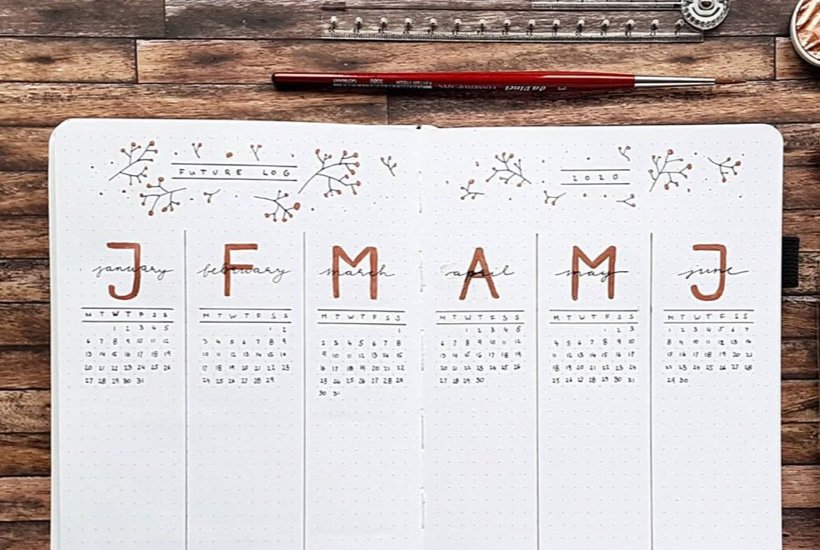 da Vinci
FUTURE LOG
2020
J
january
M T W T F S S
1 2 3 4 5
6 7 8 9 10 11 12
13 14 15 16 17 18 19
20 21 22 23 24 25 26
27 28 29 30 31
F
february
M T W T F S S
1 2
3 4 5 6 7 8 9
10 11 12 13 14 15 16
17 18 19 20 21 22 23
24 25 26 27 28 29
M
march
M T W T F S S
1
2 3 4 5 6 7 8
9 10 11 12 13 14 15
16 17 18 19 20 21 22
23 24 25 26 27 28 29
30 31
A
april
M T W T F S S
1 2 3 4 5
6 7 8 9 10 11 12
13 14 15 16 17 18 19
20 21 22 23 24 25 26
27 28 29 30
M
may
M T W T F S S
1 2 3
4 5 6 7 8 9 10
11 12 13 14 15 16 17
18 19 20 21 22 23 24
25 26 27 28 29 30 31
J
june
M T W T F S S
1 2 3 4 5 6 7
8 9 10 11 12 13 14
15 16 17 18 19 20 21
22 23 24 25 26 27 28
29 30